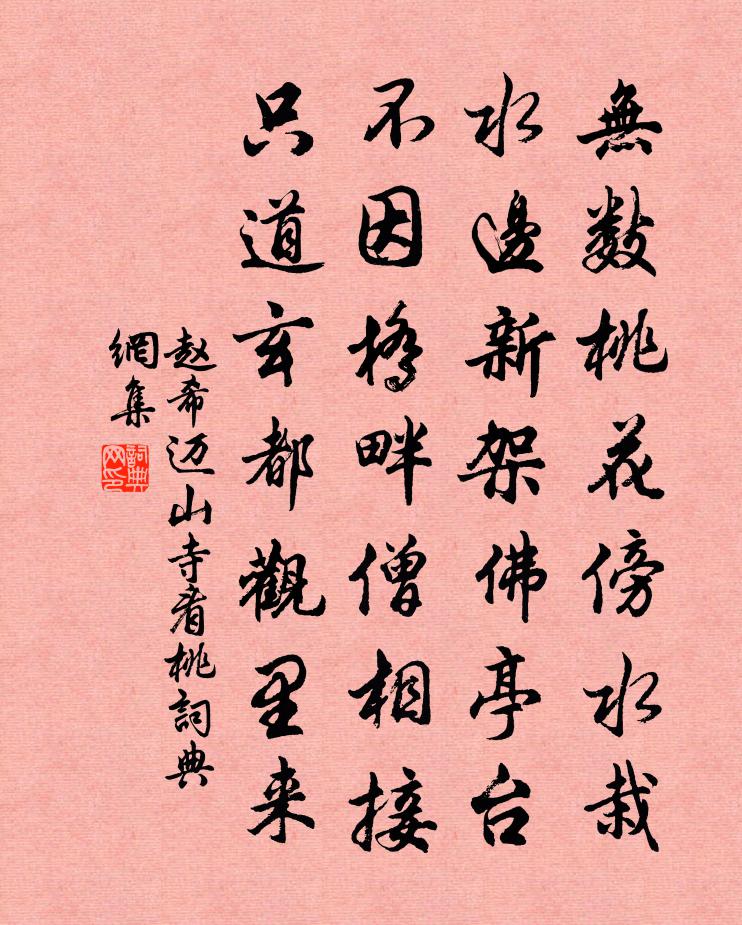 無數桃花傍水栽
水邊新架佛亭台
不因橋畔僧相接
只道玄都觀里来
赵希迈山寺看桃詞典
網集
詞典
网印